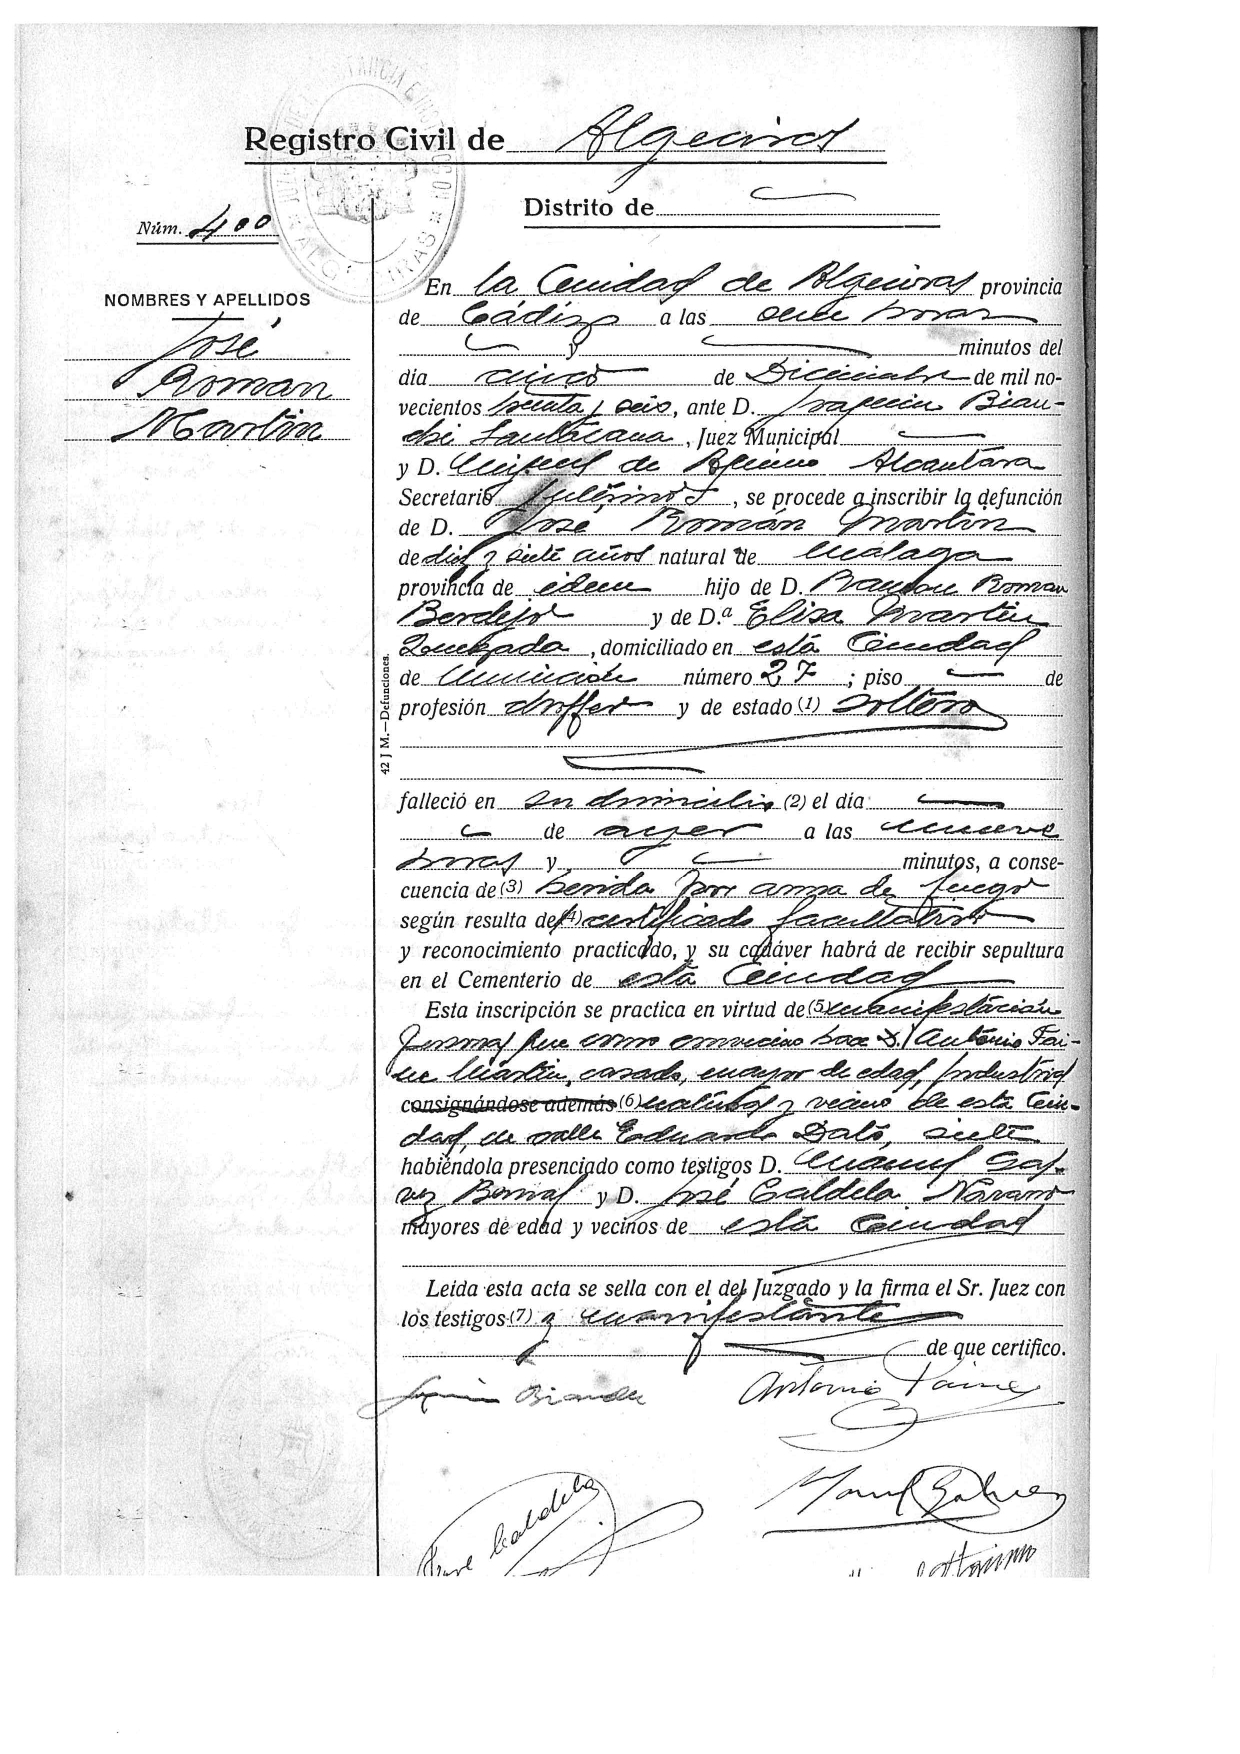 Registro Civil de Algeciras
Distrito de
Núm. 400
NOMBRES Y APELLIDOS
José
Roman
Martin
En la Ciudad de Algeciras provincia
de Cádiz a las once horas
y minutos del
día cinco de Diciembre de mil no-
vecientos treinta y seis, ante D. Joaquin Bian-
chi Santacana, Juez Municipal
y D. Miguel de Alcantara
Secretario Interino, se procede a inscribir la defunción
de D. José Román Martin
de diez y siete años natural de Malaga
provincia de idem hijo de D. Ramon Roman
Berdejo y de D.ª Elisa Martin
Quezada, domiciliado en está Ciudad
de Munición número 27; piso de
profesión choffer y de estado (1) soltero
42 J M.—Defunciones.
falleció en su domicilio (2) el día
de ayer a las nueve
horas y minutos, a conse-
cuencia de (3) herida por arma de fuego
según resulta de (4) certificado facultativo
y reconocimiento practicado, y su cadáver habrá de recibir sepultura
en el Cementerio de está Ciudad
Esta inscripción se practica en virtud de (5) manifestación
personal que como convecino hace D. Antonio Fai-
ne Martin, casado, mayor de edad, Industrial
consignándose además (6) natural y vecino de esta Ciu-
dad, en calle Eduardo Dato, siete
habiéndola presenciado como testigos D. Manuel Gal-
vez Bernal y D. José Caldela Navarro
mayores de edad y vecinos de está Ciudad
Leída esta acta se sella con el del Juzgado y la firma el Sr. Juez con
los testigos (7) y manifestante
de que certifico.
Joaquin Bianchi
Antonio Faine
José Caldela
Manuel Galvez